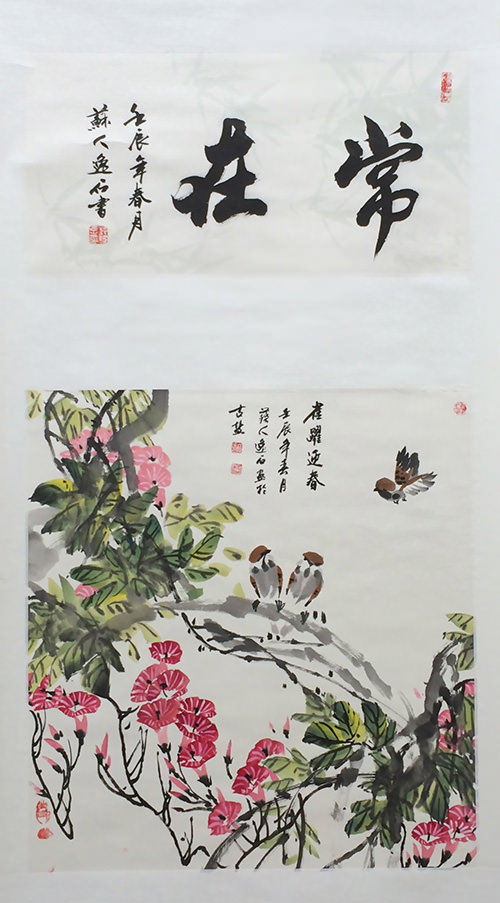 常在
壬辰年春月
蘇人逸石書
雀躍迎春
壬辰年春月
蘇人逸石畫於
古盐